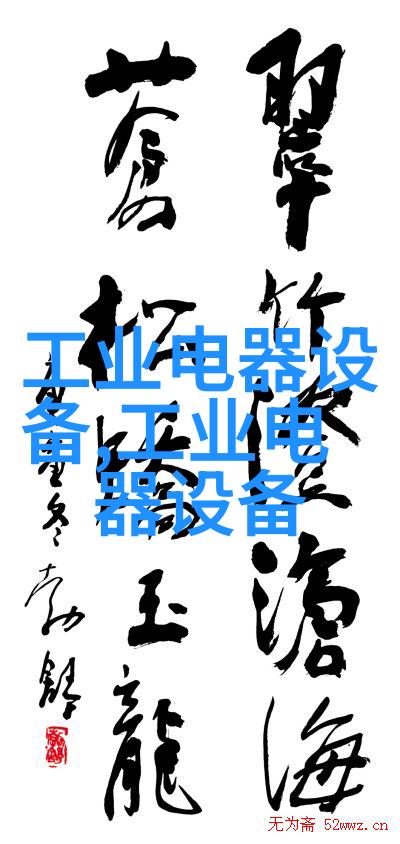 翠竹滄海
蒼松玉龍
冬勃舒
工业电器设
备,工业电
器设备
无为斋 52wwz.cn